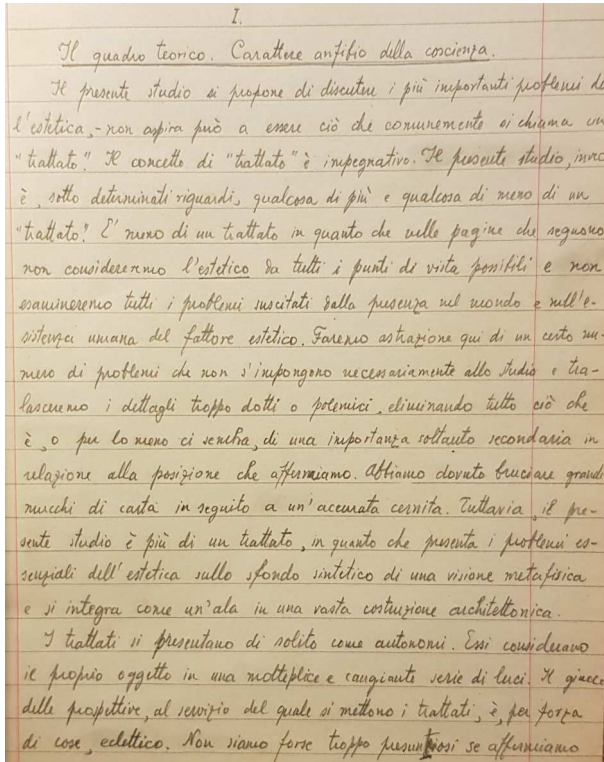 I.
Il quadro teorico. Carattere anfibio della coscienza.
Il presente studio si propone di discutere i più importanti problemi de
l'estetica, - non aspira può a essere ciò che comunemente si chiama un
"trattato". Il concetto di "trattato" è impegnativo. Il presente studio, invec
è, sotto determinati riguardi, qualcosa di più e qualcosa di meno di un
"trattato". E' meno di un trattato in quanto che nelle pagine che seguono
non considereremo l'estetico da tutti i punti di vista possibili e non
esamineremo tutti i problemi suscitati dalla presenza nel mondo e nell'e-
sistenza umana del fattore estetico. Faremo astrazione qui di un certo nu-
mero di problemi che non s'impongono necessariamente allo studio e tra-
lasceremo i dettagli troppo dotti o polemici, eliminando tutto ciò che
è, o per lo meno ci sembra, di una importanza soltanto secondaria in
relazione alla posizione che affermiamo. Abbiamo dovuto bruciare grandi
mucchi di carta in seguito a un'accurata cernita. Tuttavia, il pre-
sente studio è più di un trattato, in quanto che presenta i problemi es-
senziali dell'estetica sullo sfondo sintetico di una visione metafisica
e si integra come un'ala in una vasta costruzione architettonica.
I trattati si presentano di solito come autonomi. Essi considerano
il proprio oggetto in una molteplice e cangiante serie di luci. Il giuoco
delle prospettive, al servizio del quale si mettono i trattati, è, per forza
di cose, eclettico. Non siamo forse troppo presuntuosi se affermiamo